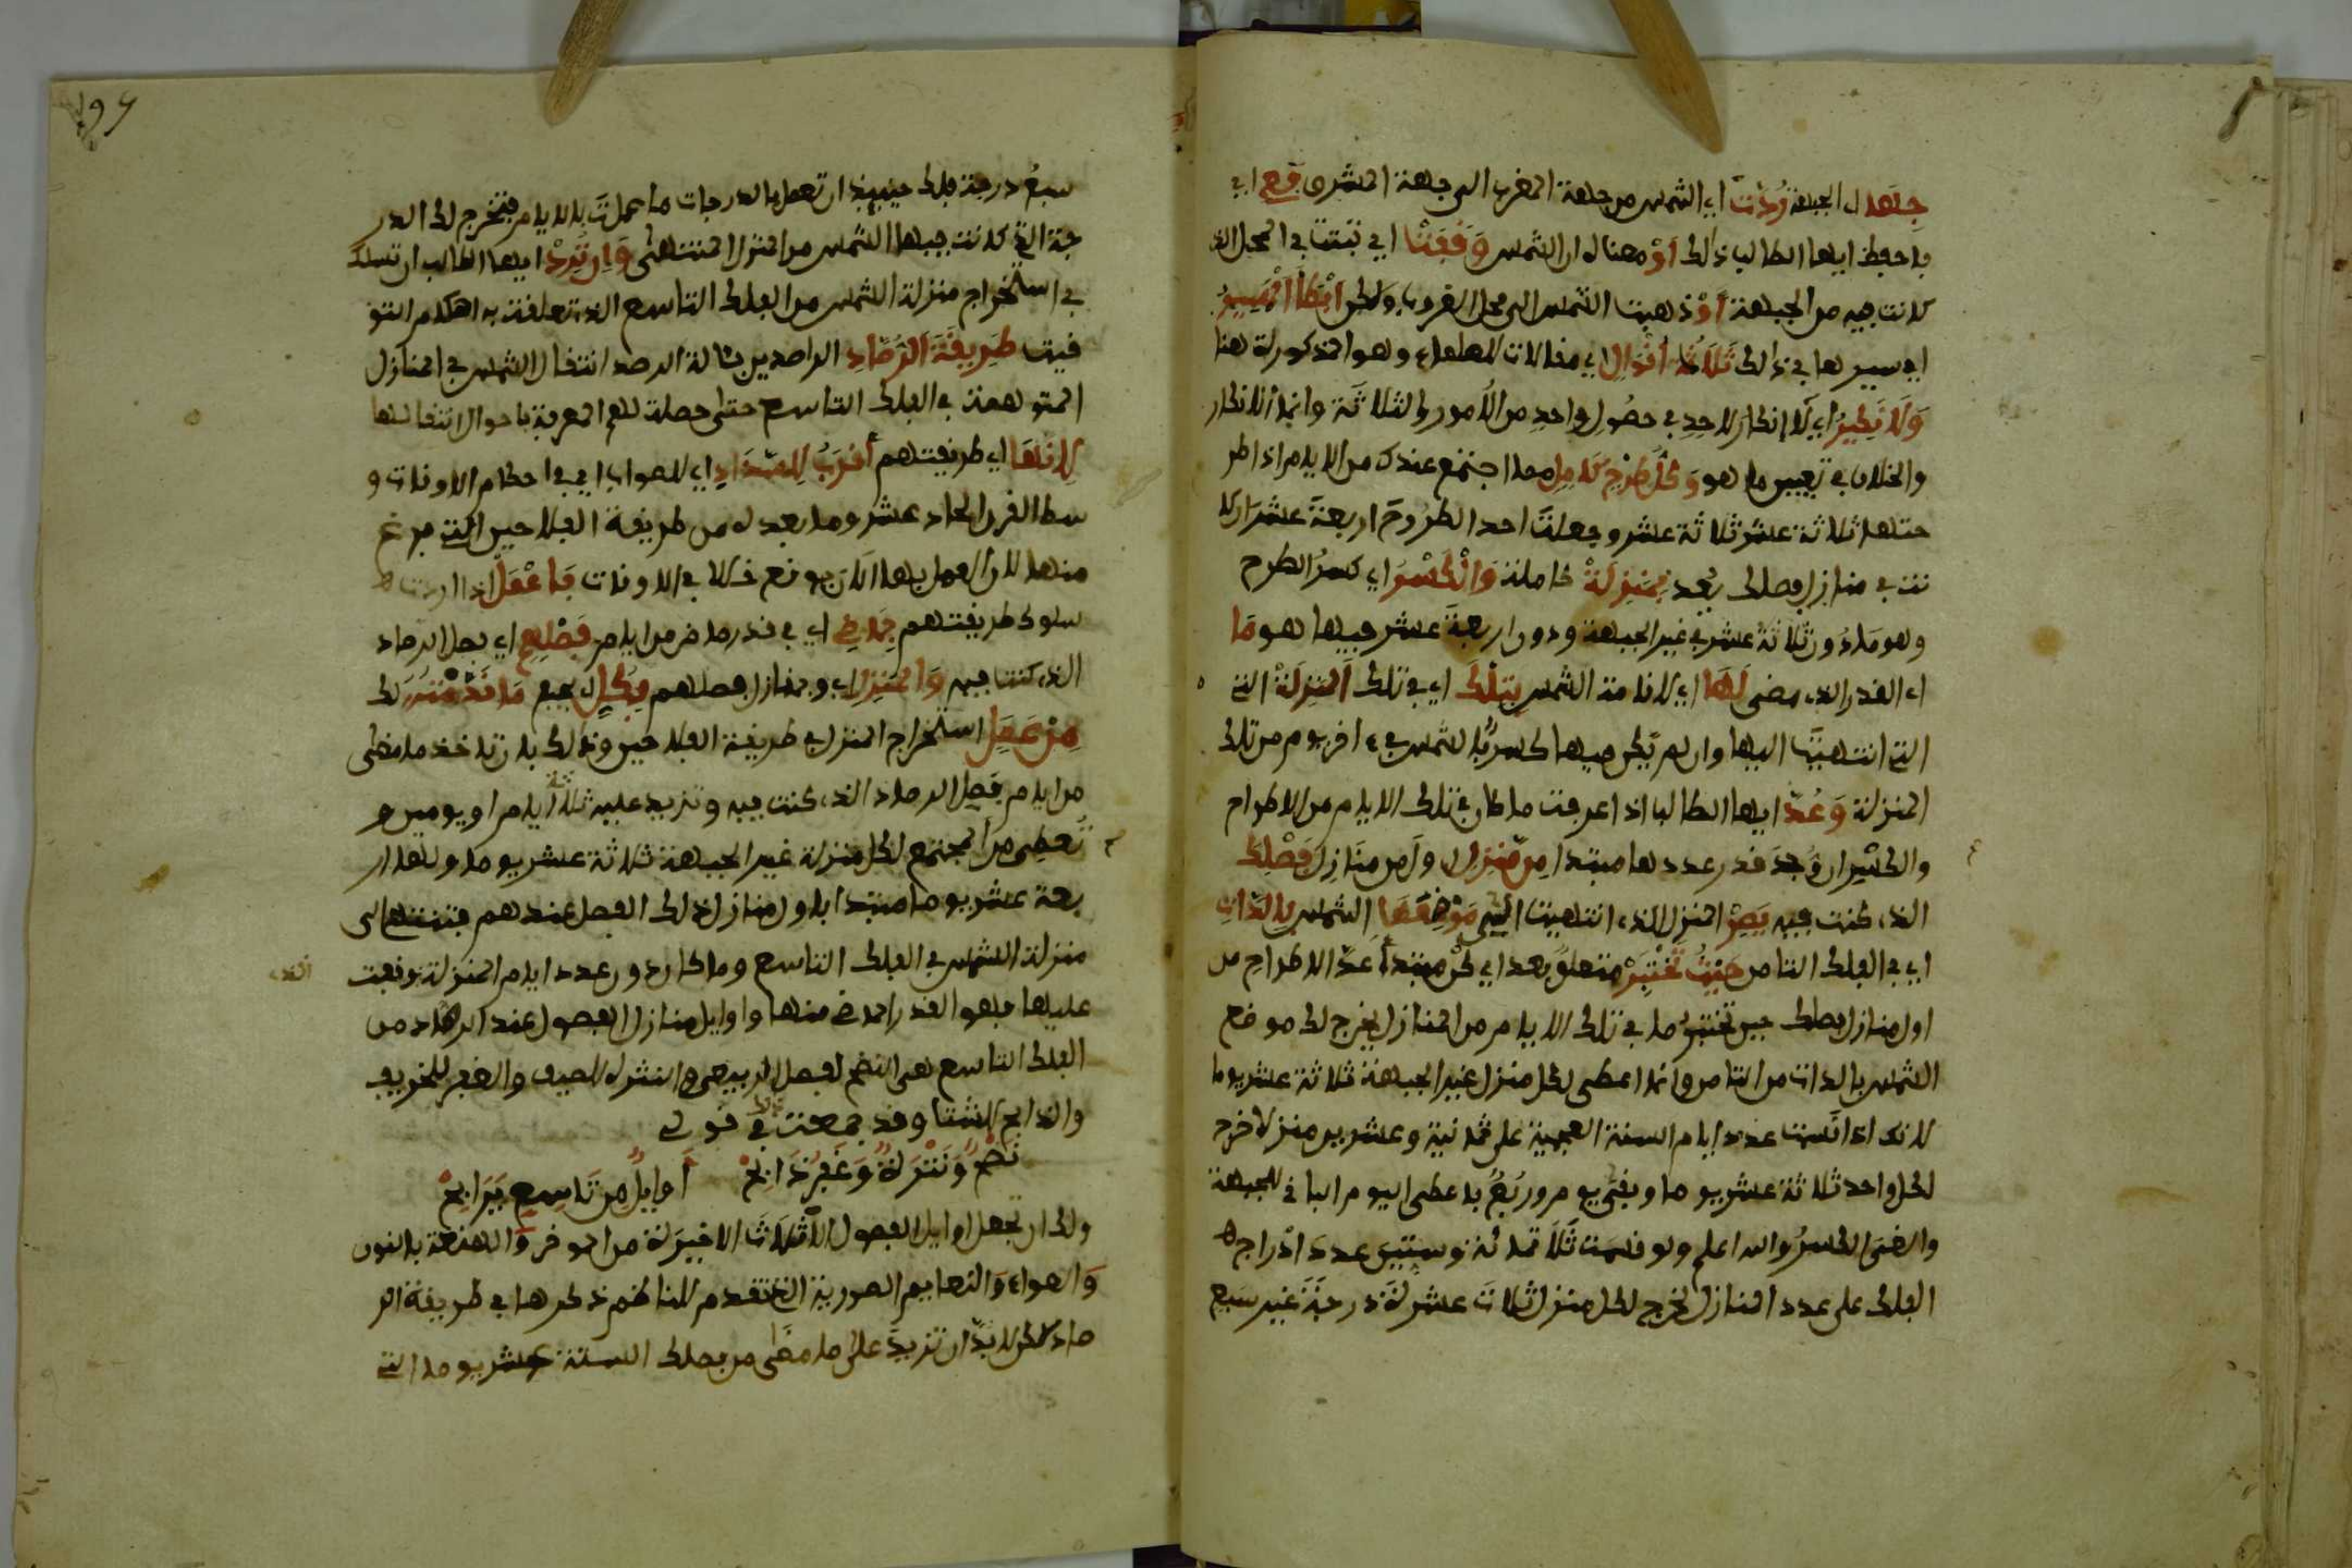 جهتها ل الجبهة رُدّت اي الشمس من جهة المغرب الى جهة المشرق فع اي
فاحفظ ايها الطالب ذلك أوْ معناه ان الشمس وَقَفَتْ اي ثبتت في المحل الذ
كانت فيه من الجبهة أوْ ذهبت الشمس الى محل الغروب ولكن ابْطَأ المَسِيرُ
اي سيرها في ذلك ثَلَاثَةُ أقْوَالٍ اي مقالات للعلماء وهو المذكورة هنا
وَلَا نَكِيرُ اي لا إنكار لاحدٍ في حصُولِ واحدٍ من الأمور الثلاثة وانما الانكار
والخلاف في تعيين ما هو وَكُلُّ طَرْحٍ كَامِلٍ مما اجتمع عندك من الايام اذا طر
حتها ثلاثة عشر ثلاثة عشر وجعلتَ احد الطروح اربعةَ عشرَ ان كا
نت في منازل فصلك يُعد بِمَنْزِلَةٍ كاملة وَالْكَسْرَ اي كسرُ الطرح
وهو مَا دُون ثلاثةَ عشر في غير الجبهة ودون اربعةَ عشر فيها هو مَا
اي القدر الذي مضى لَهَا اي لاقامة الشمس بِتِلْكَ اي في تلك المَنْزِلَةْ التي
التي انتهيتَ اليها وان لم يكن فيها كسرٌ فالشمس في ءاخر يوم من تلك
المنزلة وَعُدَّ ايها الطالب اذا عرفت ما كان في تلك الايام من الاطراح
والكسْر ان وُجدَ قدر عددها مبتدا مِن مَّنْزِلِ اول من منَازِلِ فَصْلِكَ
الذي كنت فيه يَصِرْ المنزل الذي انتهيت اليه مَوْضِعَهَا الشمس بِالذَّاتِ
اي في الفلك الثامن حَيْثُ تَخْتَبِرْ متعلق بعد اي كنْ مبتدأ عدّ الاطراحِ من
اول منازل فصلك حين تختبرُ ما في تلك الايام من المنازل يخرج لك موضع
الشمس بالذات من الثامن وانما اعطى لكل منزل غير الجبهة ثلاثة عشر يوما
لانك اذا قسمت عدد ايام السنة العجمية على ثمانية وعشرين منزلا خرج
لكل واحد ثلاثة عشر يوما وبقي يوم وربُعٌ فاعطى اليوم الباقي للجبهة
والغى الكسرُ والله اعلم ولو قسمت ثَلَاثمائة وستين عدد ادْراج
الفلك على عدد المنازل لخرج لكل منزل ثلاث عشرةَ درجةً غير سَبع
سبعُ درجة فلك حينئذ ان تعمل بالدرجات ما عملتَ بالايام فيخرج لك الدر
جة التي كانت فيها الشمس من المنزل المنتهى وَإن تُرِدْ ايها الطالب ان تسلك
في استخراج منزلة الشمس من الفلك التاسع الذي تعلقت به احكام التو
قيت طَرِيقَةَ الرُّصَّادِ الراصدين بئالة الرصد انتقال الشمس في المنازل
المتوهمة في الفلك التاسع حتى حصلة لهم المعرفة باحوال انتقالها
لِانَّهَا اي طريقتهم أقْرَبُ لِلسَّدَادِ اي للصواب اي في احكام الاوقات و
سط القرن الحاد عشر وما بعده من طريقة الفلاحين التي فرغ
منها لان العمل بها الآن يوقع خللا في الاوقات فَاعْمَلْ اذا اردت
سلوك طريقتهم بِمَاضٍ اي في قدر ماض من ايام فَصْلِهِمْ اي فصل الرصاد
الذي كنت فيه وَالمَنْزِلِ اي ومنازل فصلهم بِكُلِّ اي بجميع مَا قَدَّمْتُهُ لك
مِنْ عَمَلِ استخراج المنزل في طريقة الفلاحين وذلك بان تاخذ ما مضى
من ايام فَصِل الرصاد الذي كنت فيه وتزيد عليه ثلاثة أيام او يومين و
تُعطِى من المجتمع لكل منزلة غير الجبهة ثلاثة عشر يوما ولها ار
بعة عشر يوما مبتدا باول منازل ذلك الفصل عندهم فتنتهى الى
منزلة الشمس في الفلك التاسع وما كان دون عدد ايام المنزلة وقفت
عليها فهو القدر الماضي منها واوايل منازل الفصول عند الرصاد من
الفلك التاسع هي النضح لفصل الربيع والنثرة للصيف والغفر للخريف
والذابح للشتا وقد جمعت ذلك في قولي
نَضْحٌ وَنَثْرَةٌ وَغَفْرٌ ذَابِحْ أوايِلٌ مِن تَاسِعٍ يَرَابِحْ
ولك ان تجعل اوايل الفصول الأثلاثَ الاخيرة من المؤخر وَالهنعة بالنون
وَالعواء وَالنعايم الصورية التي تقدم للناظم ذكرها في طريقة الر
صاد لكن لا بدّ ان تزيدَ على ما مضَى من فصلك الستة عشر يوما التي